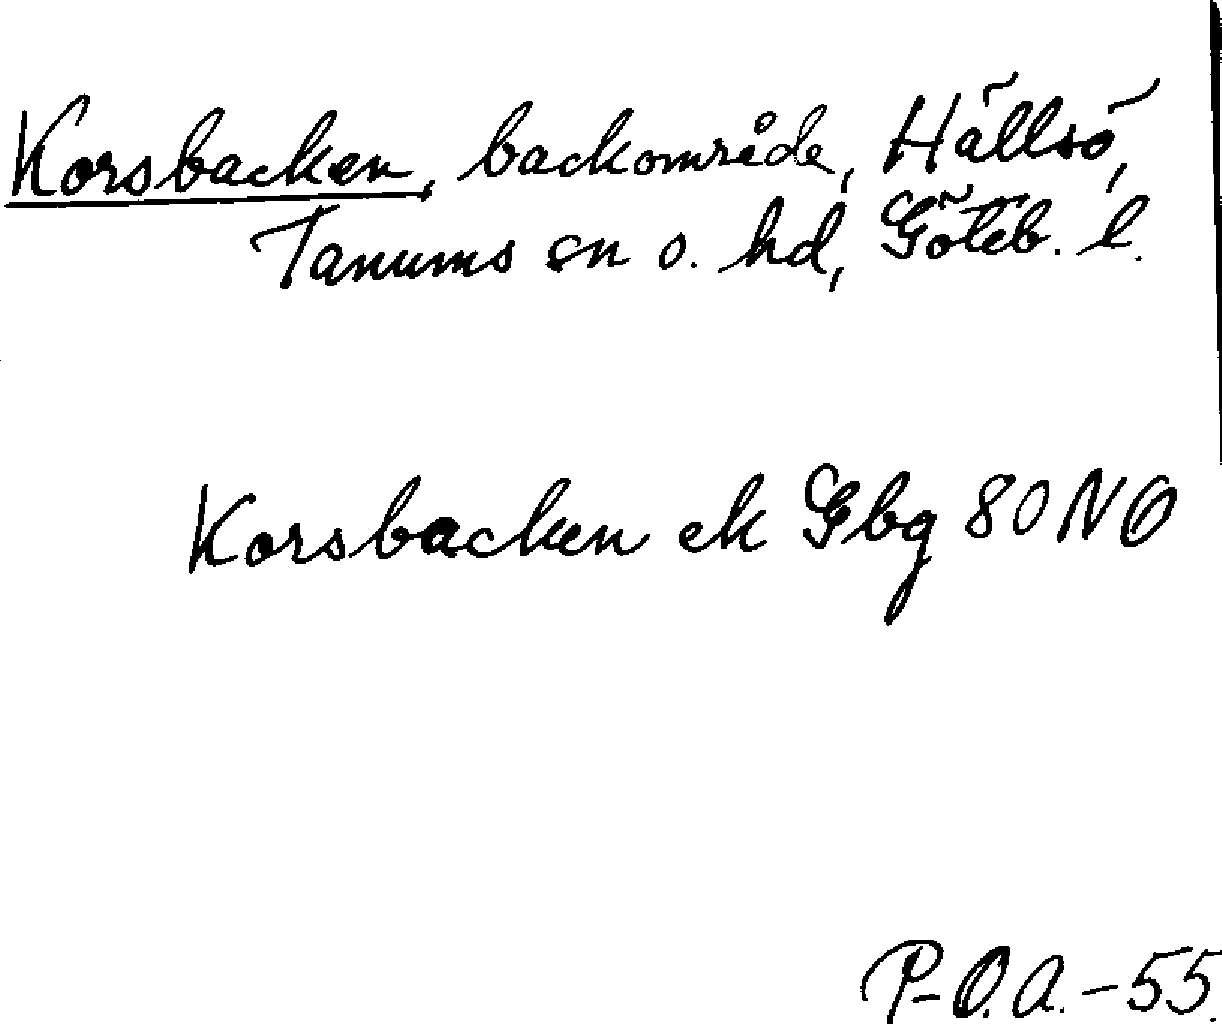 Korsbacken, backområde, Hällsö,
Tanums sn o. hd, Göteb. l.
Korsbacken ek Gbg 80 NO
P-O.A.-55.